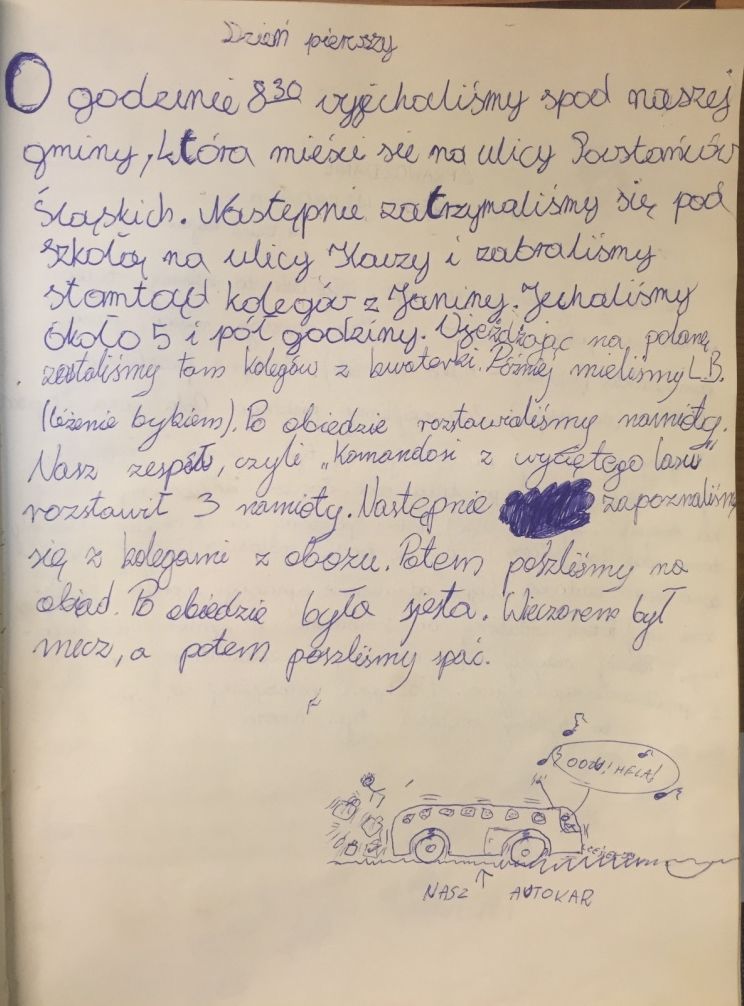 Dzień pierwszy
O godzinie 8³⁰ wyjechaliśmy spod naszej
gminy, która mieści się na ulicy Powstańców
Śląskich. Następnie zatrzymaliśmy się pod
szkołą na ulicy Kawzy i zabraliśmy
stamtąd kolegów z Janiny. Jechaliśmy
około 5 i pół godziny. Wjeżdżając na polanę
zastaliśmy tam kolegów z kwaterki. Później mieliśmy L.B.
(leżenie bykiem). Po obiedzie rozstawialiśmy namioty.
Nasz zespół, czyli „Komandosi z wyciętego lasu”
rozstawił 3 namioty. Następnie zapoznaliśmy
się z kolegami z obozu. Potem poszliśmy na
obiad. Po obiedzie była sjesta. Wieczorem był
mecz, a potem poszliśmy spać.
HELA!
NASZ AUTOKAR